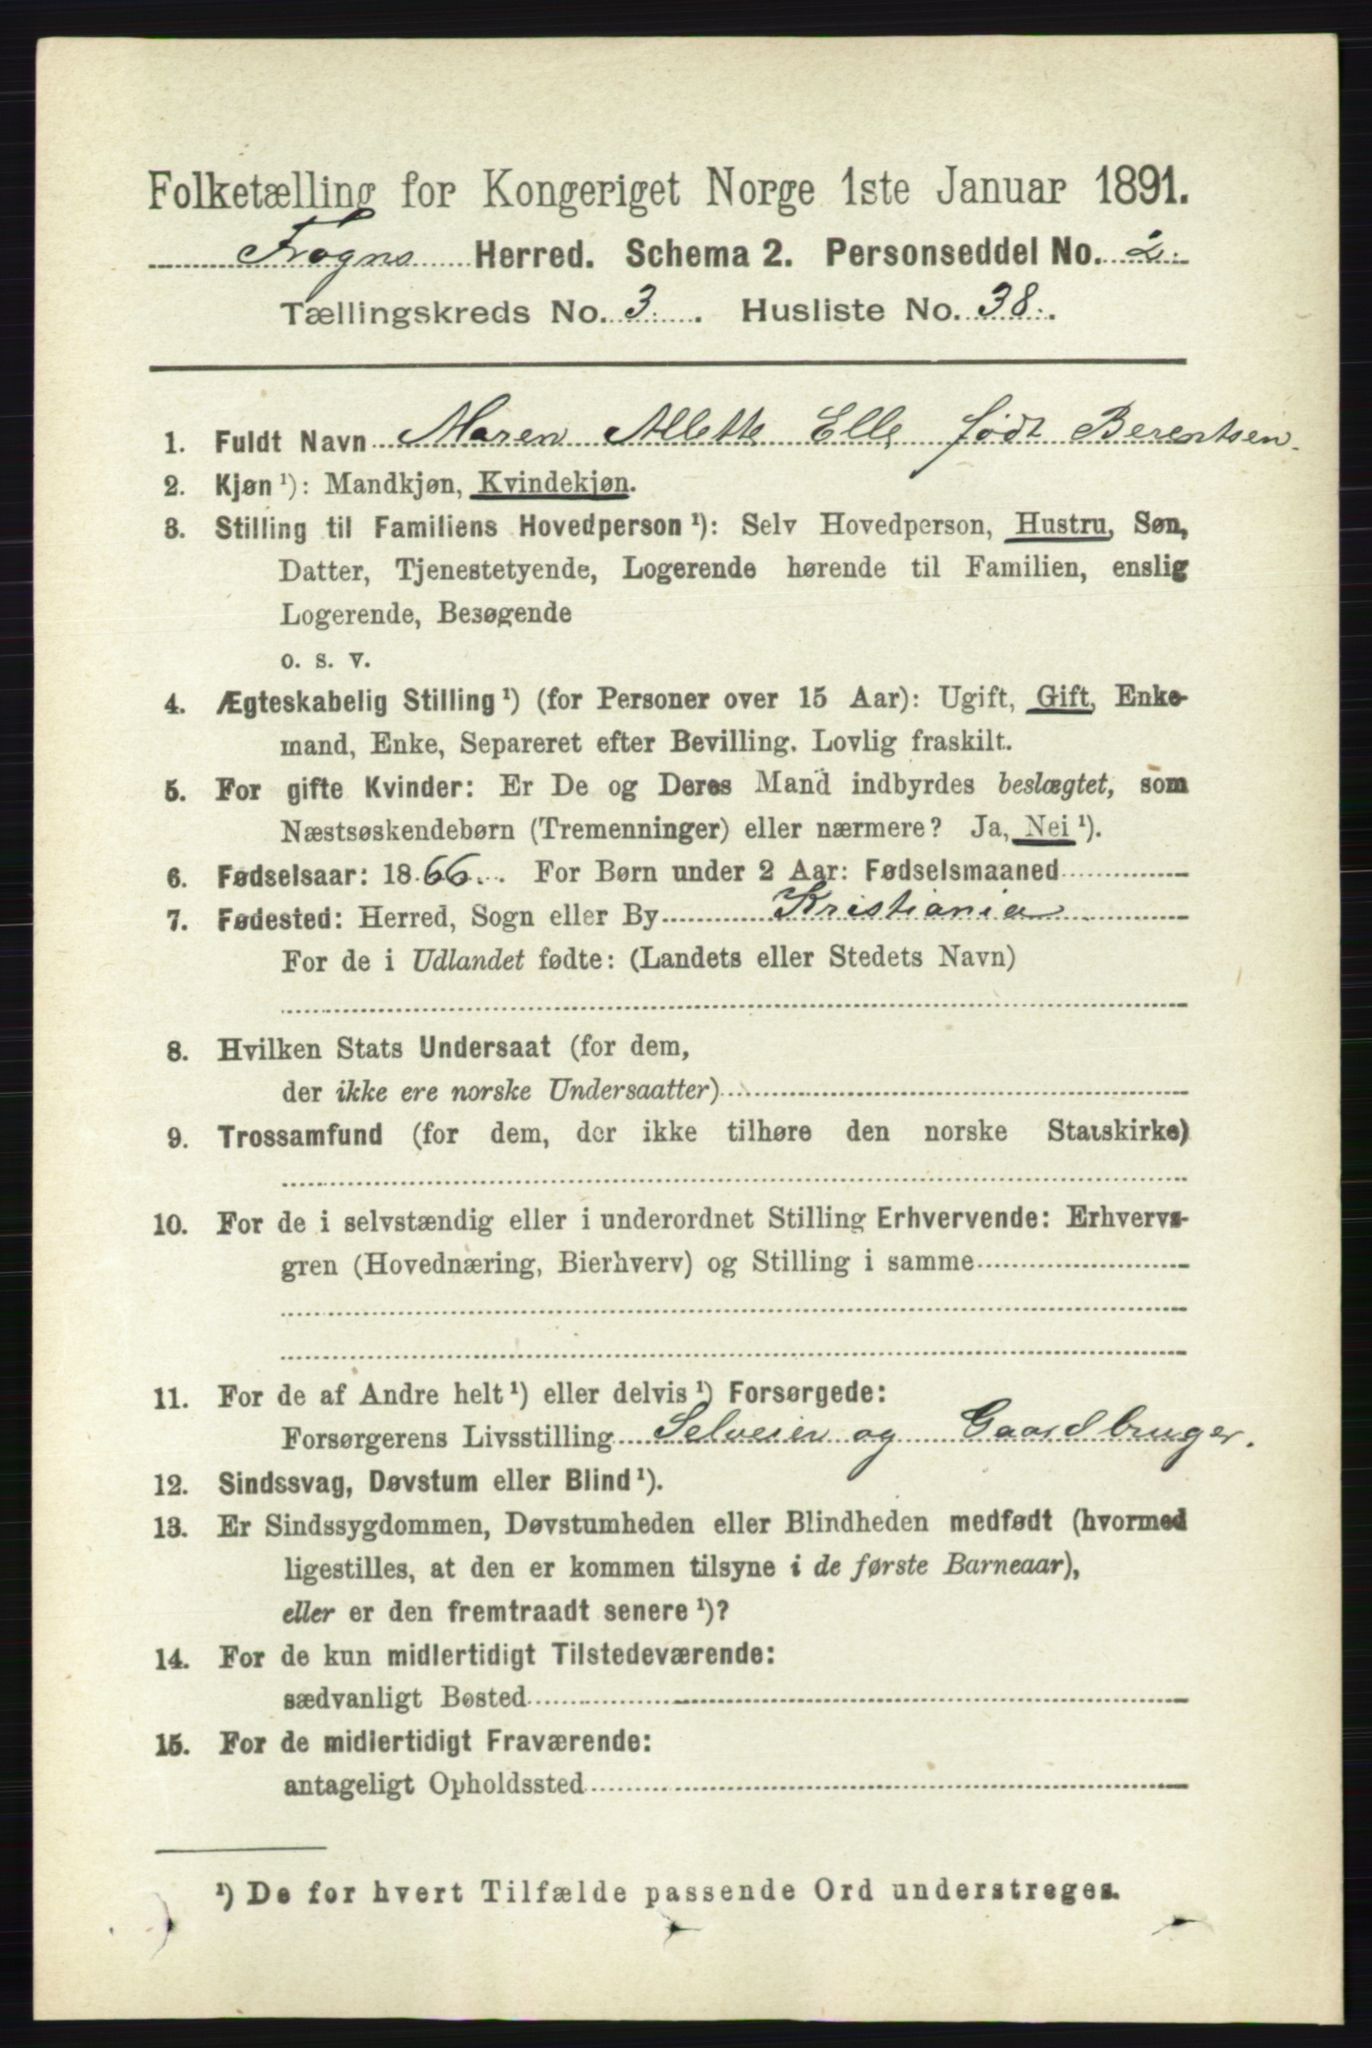 Folketælling for Kongeriget Norge 1ste Januar 1891.
Frogns Herred. Schema 2. Personseddel No. 2.
Tællingskreds No. 3. Husliste No. 38.
1. Fuldt Navn Maren Alette Elle født Berentsen.
2. Kjøn ¹): Mandkjøn, Kvindekjøn.
3. Stilling til Familiens Hovedperson ¹): Selv Hovedperson, Hustru, Søn,
Datter, Tjenestetyende, Logerende hørende til Familien, enslig
Logerende, Besøgende
o. s. v.
4. Ægteskabelig Stilling ¹) (for Personer over 15 Aar): Ugift, Gift, Enke-
mand, Enke, Separeret efter Bevilling. Lovlig fraskilt.
5. For gifte Kvinder: Er De og Deres Mand indbyrdes beslægtet, som
Næstsøskendebørn (Tremenninger) eller nærmere? Ja, Nei ¹).
6. Fødselsaar: 1866. For Børn under 2 Aar: Fødselsmaaned
7. Fødested: Herred, Sogn eller By Kristiania
For de i Udlandet fødte: (Landets eller Stedets Navn)
8. Hvilken Stats Undersaat (for dem,
der ikke ere norske Undersaatter)
9. Trossamfund (for dem, der ikke tilhøre den norske Statskirke)
10. For de i selvstændig eller i underordnet Stilling Erhvervende: Erhvervs-
gren (Hovednæring, Bierhverv) og Stilling i samme
11. For de af Andre helt ¹) eller delvis ¹) Forsørgede:
Forsørgerens Livsstilling Selveier og Gaardbruger.
12. Sindssvag, Døvstum eller Blind ¹).
13. Er Sindssygdommen, Døvstumheden eller Blindheden medfødt (hvormed
ligestilles, at den er kommen tilsyne i de første Barneaar),
eller er den fremtraadt senere ¹)?
14. For de kun midlertidigt Tilstedeværende:
sædvanligt Bosted
15. For de midlertidigt Fraværende:
antageligt Opholdssted
¹) De for hvert Tilfælde passende Ord understreges.